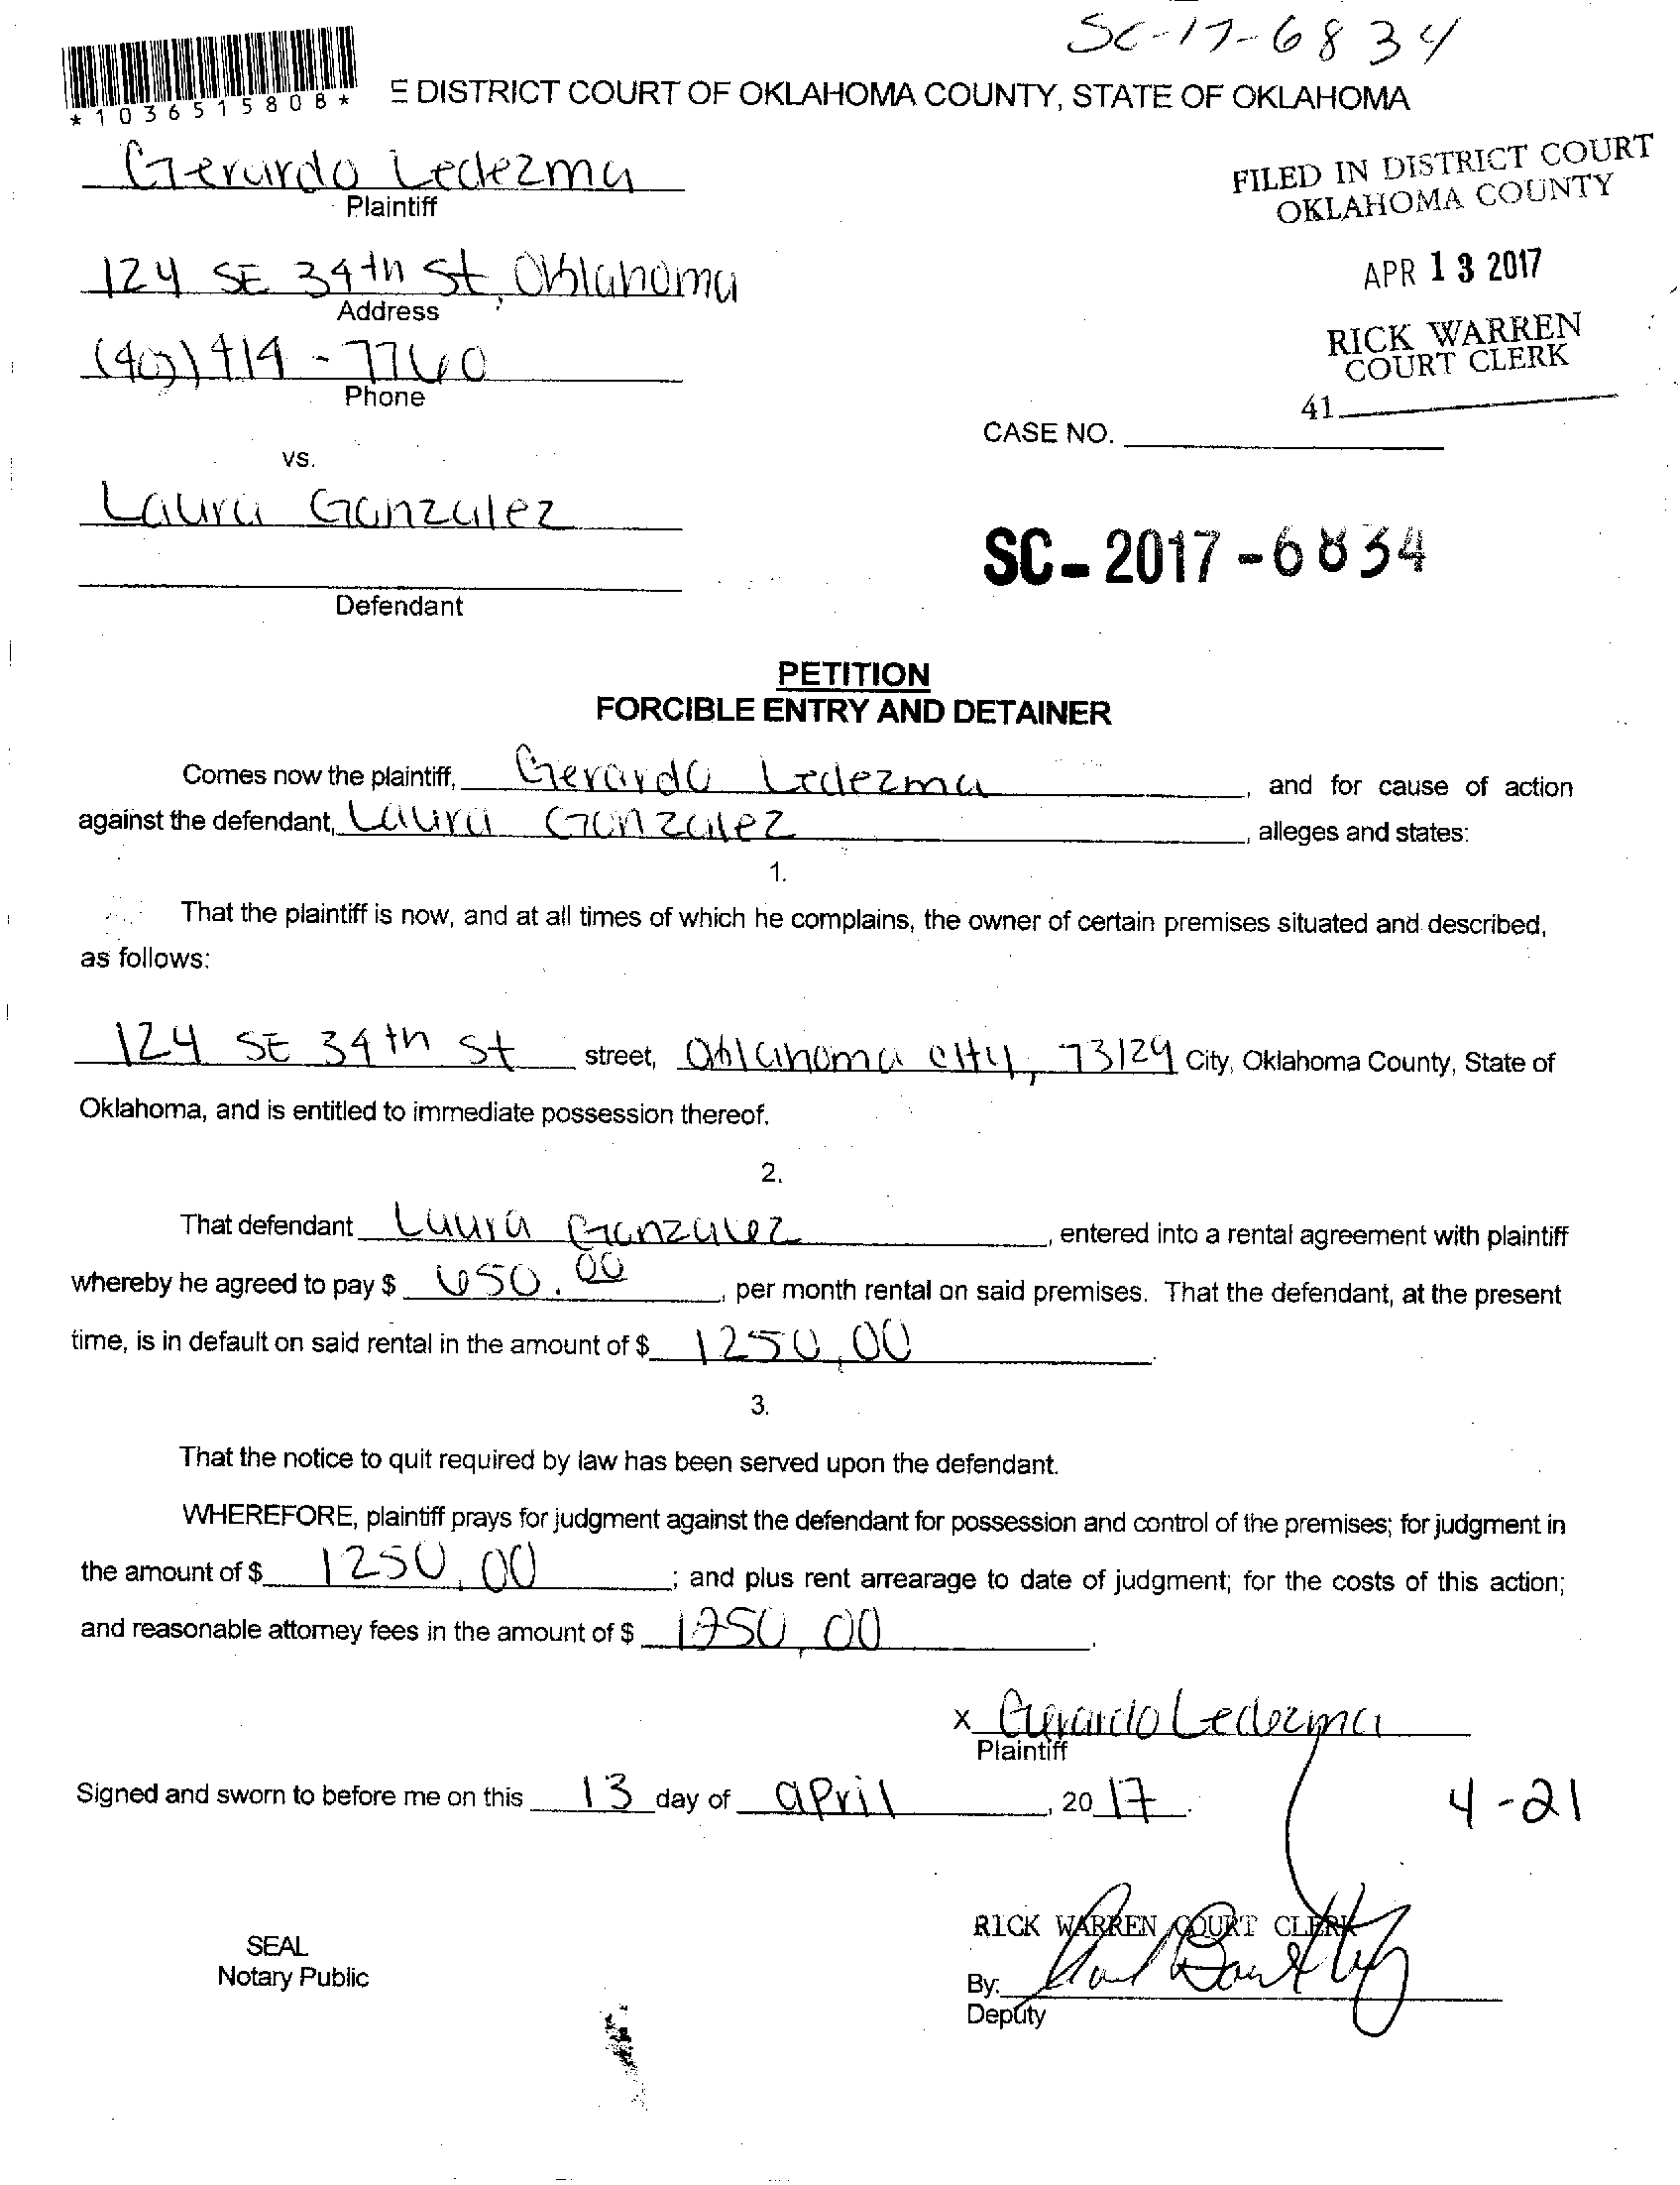 SC-17-6834
*1036515808*
E DISTRICT COURT OF OKLAHOMA COUNTY, STATE OF OKLAHOMA
Gerardo Ledezma
Plaintiff
FILED IN DISTRICT COURT
OKLAHOMA COUNTY
124 SE 34th St, Oklahoma
Address
APR 13 2017
RICK WARREN
COURT CLERK
414-7760
Phone
41
CASE NO.
vs.
Laura Gonzalez
SC-2017-6834
Defendant
PETITION
FORCIBLE ENTRY AND DETAINER
Comes now the plaintiff, Gerardo Ledezma, and for cause of action
against the defendant, Laura Gonzalez, alleges and states:
1.
That the plaintiff is now, and at all times of which he complains, the owner of certain premises situated and described,
as follows:
124 SE 34th St street, Oklahoma city, 73129 City, Oklahoma County, State of
Oklahoma, and is entitled to immediate possession thereof.
2.
That defendant Laura Gonzalez, entered into a rental agreement with plaintiff
whereby he agreed to pay $ 650.00, per month rental on said premises. That the defendant, at the present
time, is in default on said rental in the amount of $ 1250,00.
3.
That the notice to quit required by law has been served upon the defendant.
WHEREFORE, plaintiff prays for judgment against the defendant for possession and control of the premises; for judgment in
the amount of $ 1250,00; and plus rent arrearage to date of judgment; for the costs of this action;
and reasonable attorney fees in the amount of $ 1250,00.
x Gerardo Ledezma
Plaintiff
Signed and sworn to before me on this 13 day of april, 2017.
4-21
RICK WARREN COURT CLERK
SEAL
Notary Public
By:
Deputy